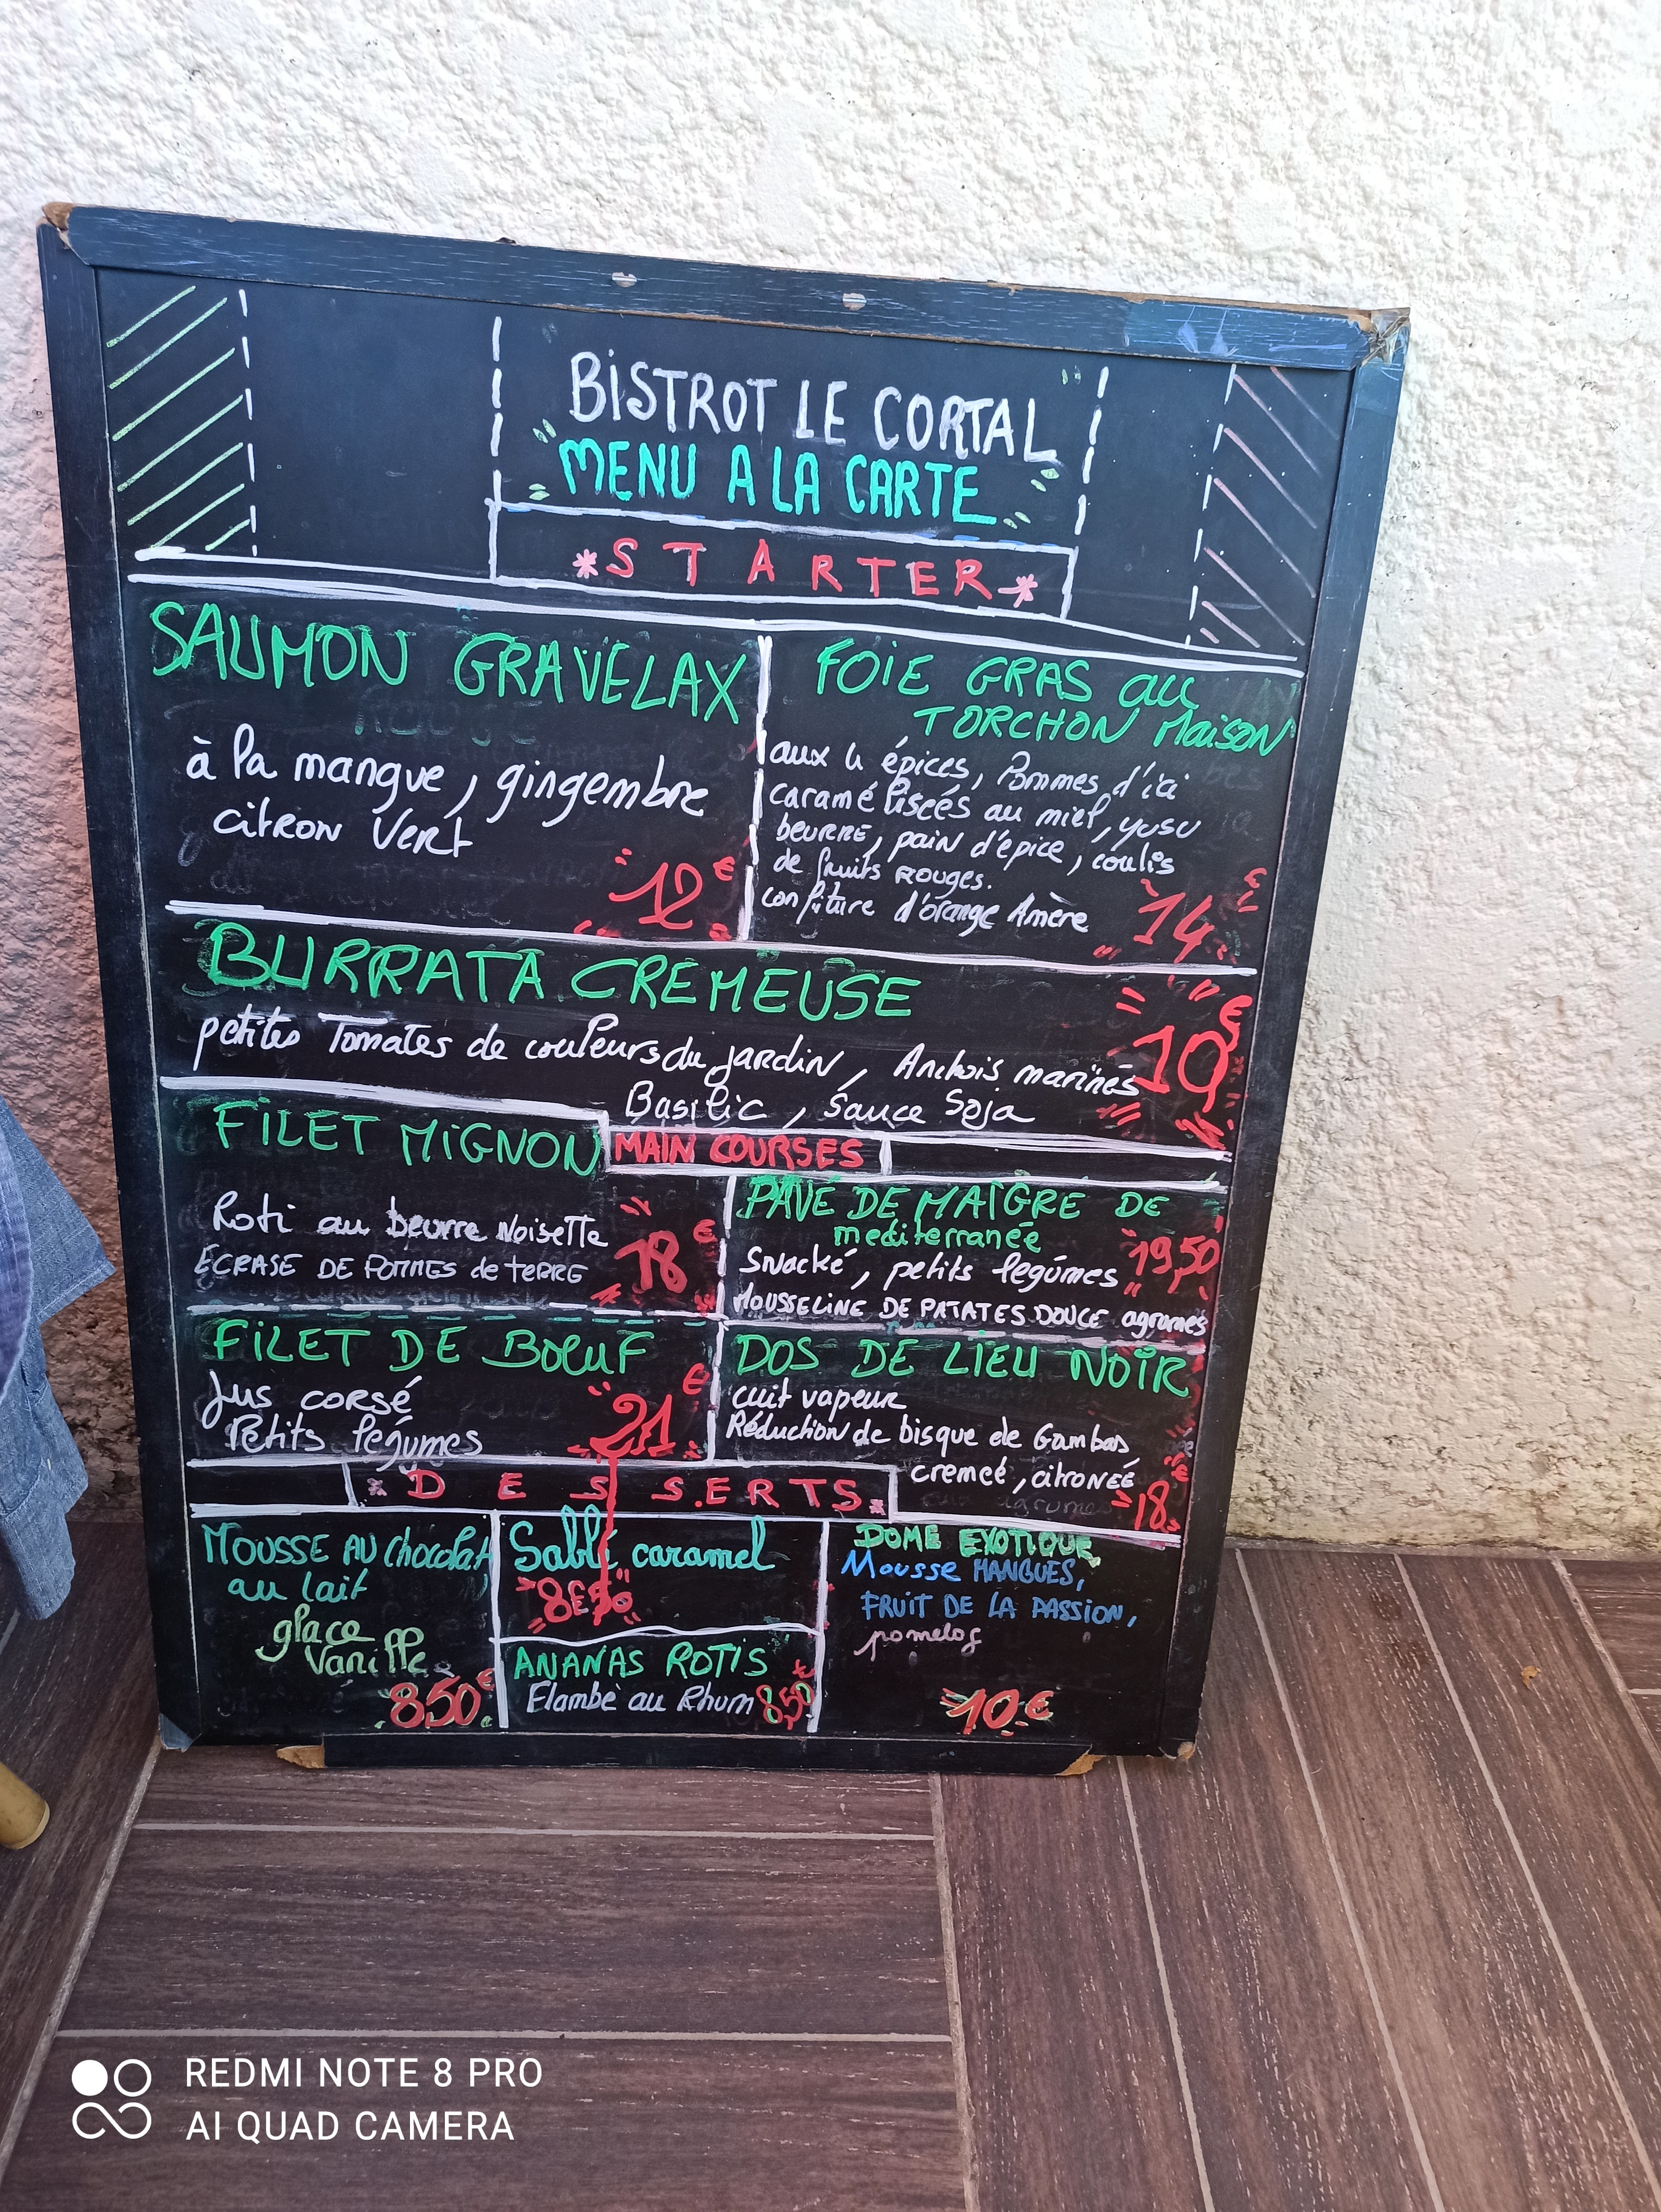 BISTROT LE CORTAL
MENU A LA CARTE
*STARTER*
SAUMON GRAVELAX
à la mangue, gingembre
citron vert
12€
FOIE GRAS au
TORCHON MAISON
aux 4 épices, Pommes d'ici
caraméliscés au miel, yusu
beurre, pain d'épice, coulis
de fruits rouges.
confiture d'orange Amère
14€
BURRATA CREMEUSE
petites Tomates de couleurs du jardin, Anchois marinés
Basilic, Sauce Soja
10€
FILET MIGNON
Roti au beurre Noisette
ECRASE DE POMMES de terre
18€
MAIN COURSES
PAVÉ DE MAIGRE DE
mediterranée
Snacké, petits légúmes
MOUSSELINE DE PATATES DOUCE agrumes
19,50
FILET DE BOEUF
Jus corsé
Petits légumes
21€
DOS DE LIEU NOIR
cuit vapeur
Réduction de bisque de Gambas
cremeé, citroneé
18€
*DESSERTS*
MOUSSE AU chocolat
au lait
glace
Vanille
8.50€
Sablé caramel
8€50
ANANAS ROTIS
Flambé au Rhum 8,50€
DOME EXOTIQUE
Mousse MANGUES,
FRUIT DE LA PASSION,
pomelos
10€
REDMI NOTE 8 PRO
AI QUAD CAMERA